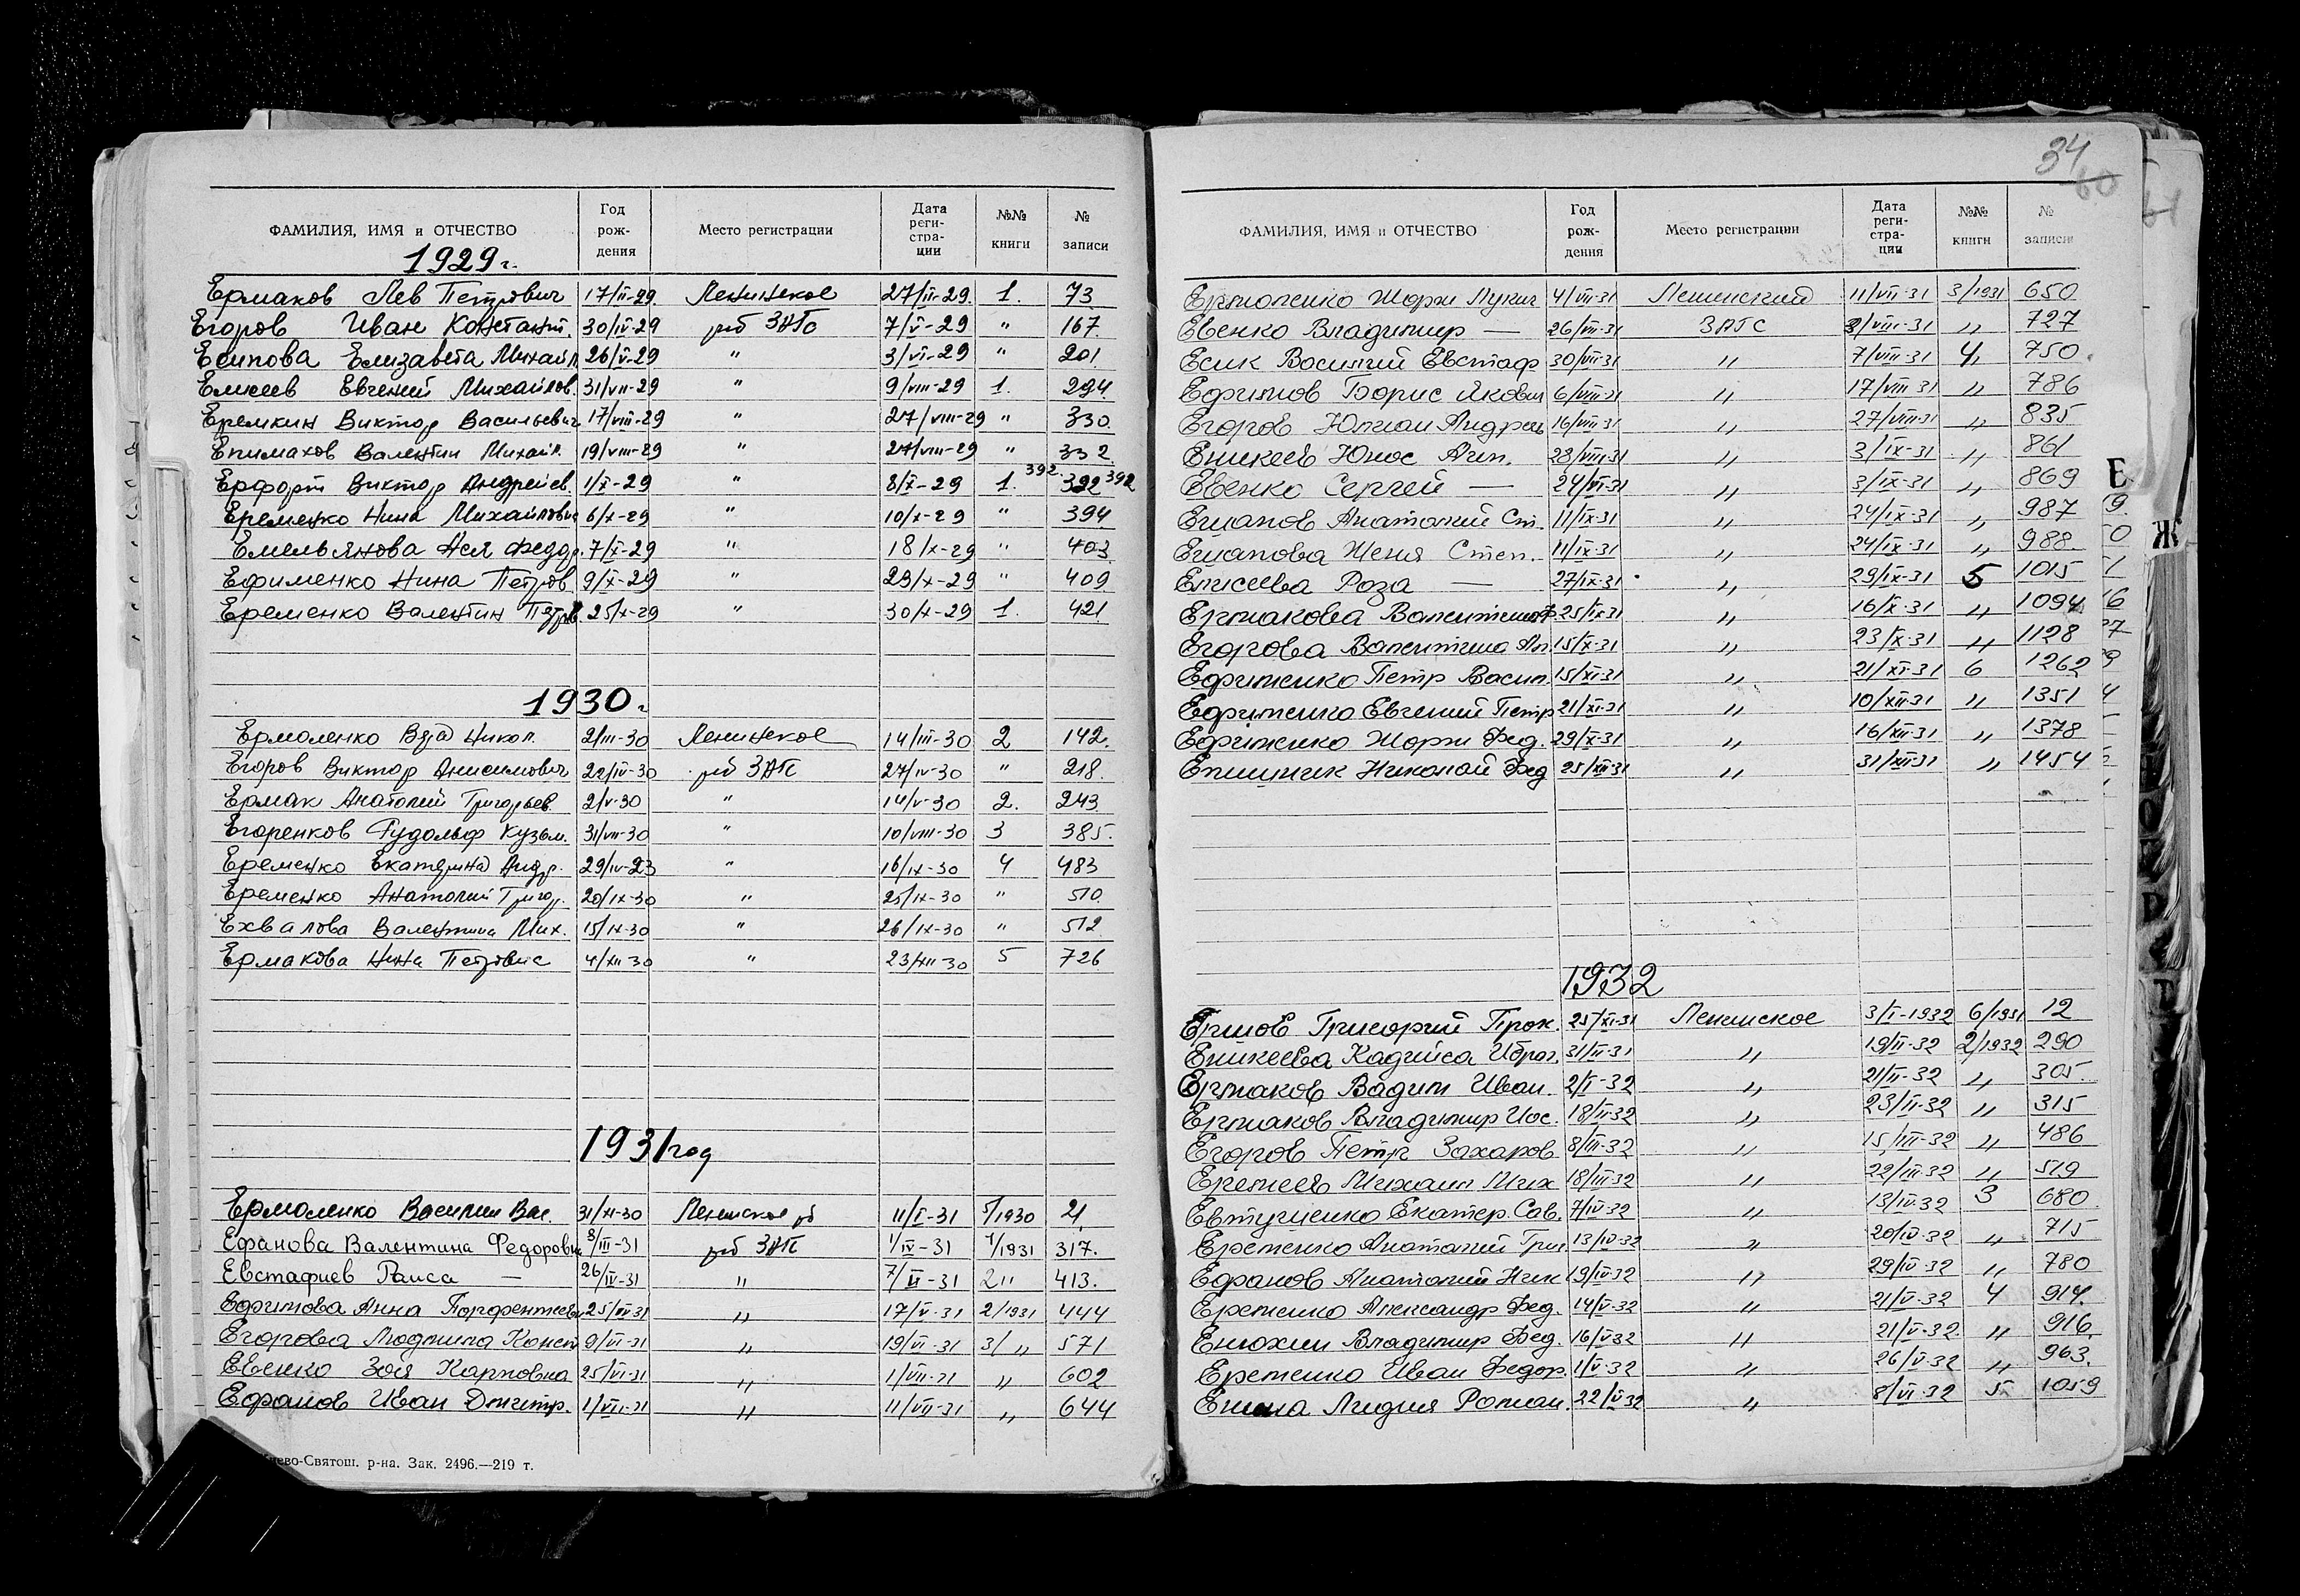 ФАМИЛИЯ, ИМЯ и ОТЧЕСТВО | Год рождения | Место регистрации | Дата регистрации | №№ книги | № записи
1929 г.
Ермаков Лев Петрович 17/II-29. Ленинское 27/II-29. 1. 73
Егоров Иван Констант. 30/IV-29 рб ЗАГс 7/V-29 " 167.
Есипова Елизавета Михайл 26/V-29 " 3/VI-29 " 201
Еликеев Евгений Михайлов. 31/VII-29 " 9/VIII-29 1. 294.
Еремкин Виктор Васильевич 17/VIII-29 " 27/VIII-29 " 330.
Епимахов Валентин Михайл. 19/VIII-29 " 27/VIII-29 " 332
Ерфорт Виктор Андреев. 1/X-29 " 8/X-29 1. 392. 392 392
Еременко Нина Михайловна 6/X-29 " 10/X-29 " 394
Емельянова Нея Федор. 7/X-29 " 18/X-29 " 403
Ефименко Нина Петров. 9/X-29 " 23/X-29 " 409
Еременко Валентин Петров. 25/X-29 " 30/X-29 1. 421
1930 г.
Ермоленко Влад Никол. 2/III-30 Ленинское 14/III-30 2 142.
Егоров Виктор Анисимович 22/IV-30 рб ЗАГС 27/IV-30 " 218.
Ермак Анатолий Григорьев. 2/V-30 " 14/V-30 2. 243
Егоренков Рудольф Кузьм. 31/VII-30 " 10/VIII-30 3 385.
Еременко Екатерина Андр. 29/IV-23 " 16/IX-30 4 483
Еременко Анатолий Григор. 20/IX-30 " 25/IX-30 " 510
Ехвалова Валентина Мих. 15/IX-30 " 26/IX-30 " 512
Ермакова Нина Петровна 4/XII-30 " 23/XII-30 5 726
1931 год
Ермоленко Василий Вас. 31/XII-30 Ленинское рб 11/I-31 5/1930 21
Ефанова Валентина Федоровна 8/III-31 рб ЗАГС 1/IV-31 1/1931 317.
Евстафиев Раиса — 26/IV-31 " 7/VI-31 2 " 413.
Ефимова Анна Порфентиевн 25/III-31 " 17/V-31 2/1931 444
Егорова Людмила Конст 9/VI-31 " 19/VI-31 3/ " 571
Евенко Зоя Карповна 25/VI-31 " 1/VII-31 " 602
Ефанов Иван Дмитр. 1/VII-31 " 11/VII-31 " 644
Киево-Святош. р-на. Зак. 2496.—219 т.
34
60
61
ФАМИЛИЯ, ИМЯ и ОТЧЕСТВО | Год рождения | Место регистрации | Дата регистрации | №№ книги | № записи
Ермоленко Жорж Лукич 4/VII-31 Ленинский 11/VII-31 3/1931 650
Евенко Владимир — 26/VII-31 ЗАГС 2/VIII-31 " 727
Есик Василий Евстаф 30/VII-31 " 7/VIII-31 4 " 750.
Ефимов Борис Яковл 6/VIII-31 " 17/VIII-31 " 786
Егоров Юлиан Андреев 16/VIII-31 " 27/VIII-31 " 835
Еникеев Юнос Алип. 28/VIII-31 " 3/IX-31 " 861
Евенко Сергей — 24/VI-31 " 3/IX-31 " 869
Ешанов Анатолий Ст. 11/IX-31 " 24/IX-31 " 987
Ешанова Женя Степ. 11/IX-31 " 24/IX-31 " 988.
Елисеева Роза — 27/IX-31 " 29/IX-31 5 1015
Ермакова Валентина Ф. 25/IX-31 " 16/X-31 " 1094
Егорова Валентина Ан. 15/X-31 " 23/X-31 " 1128
Ефименко Петр Васил. 15/XI-31 " 21/XI-31 6 1262
Ефименко Евгений Петр 21/XI-31 " 10/XII-31 " 1351
Ефименко Жорж Фед. 29/X-31 " 16/XII-31 " 1378
Епищник Николай Фед 25/XII-31 " 31/XII-31 " 1454
1932
Ершов Григорий Прок. 25/XI-31 Ленинское 3/I-1932 6/1931 12
Еникеева Кадийса Ибраг. 31/II-31 " 19/II-32 2/1932 290
Ермаков Вадим Иван. 2/I-32 " 21/II-32 " 305.
Ермаков Владимир Иос. 18/II-32 " 23/II-32 " 315
Егоров Петр Захаров 8/III-32 " 15/III-32 " 486
Еремеев Михаил Мих 18/III-32 " 22/III-32 " 519
Евтущенко Екатер. Сав. 7/IV-32 " 13/IV-32 3 680.
Еременко Анатолий Григ 13/IV-32 " 20/IV-32 " 715
Ефанов Анатолий Ник 19/IV-32 " 29/IV-32 " 780
Еременко Александр Фед. 14/V-32 " 21/V-32 4 914.
Енюхин Владимир Фед. 16/V-32 " 21/V-32. " 916.
Еременко Иван Федор. 1/V-32 " 26/V-32 " 963.
Лидия Роман. 22/V-32 " 8/VI-32 5 1059
Е
Ж